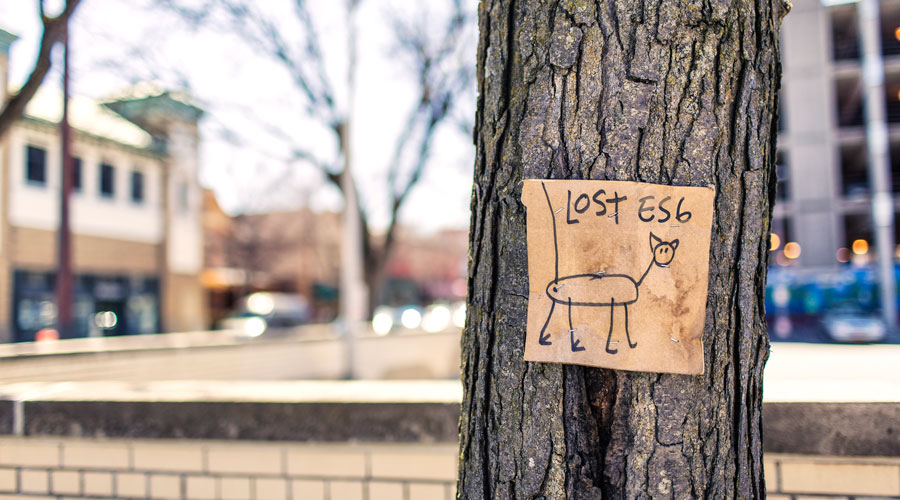 LOST ES6